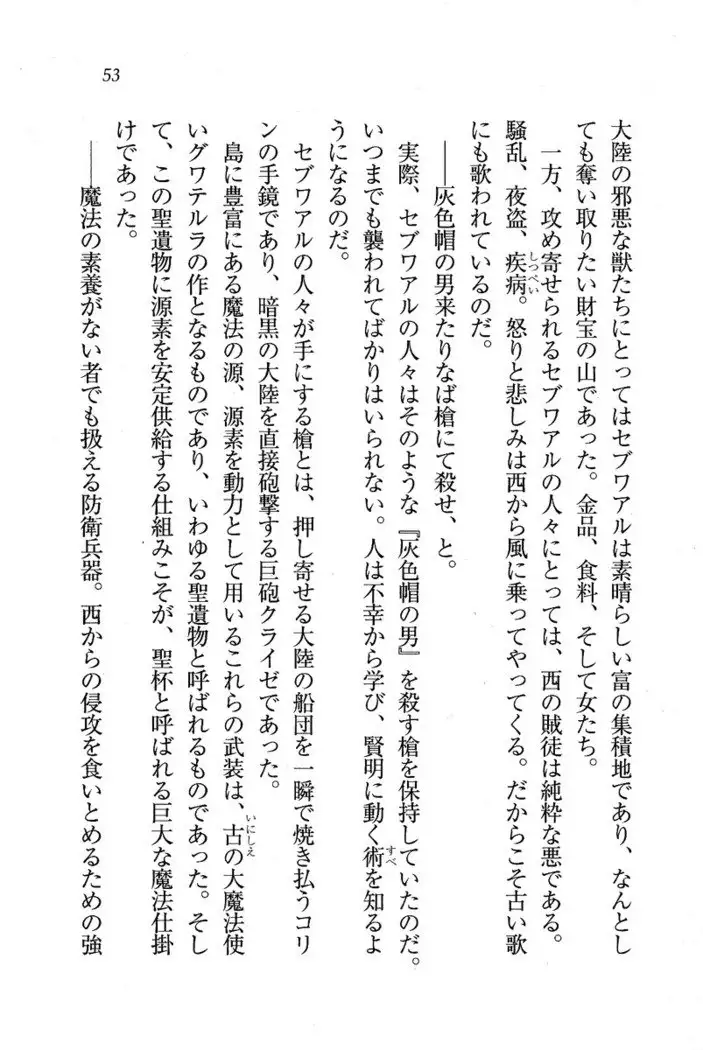 53
大陸の邪悪な獣たちにとってはセブワアルは素晴らしい富の集積地であり、なんとし
ても奪い取りたい財宝の山であった。金品、食料、そして女たち。
一方、攻め寄せられるセブワアルの人々にとっては、西の賊徒は純粋な悪である。
騒乱、夜盗、疾病。怒りと悲しみは西から風に乗ってやってくる。だからこそ古い歌
にも歌われているのだ。
――灰色帽の男来たりなば槍にて殺せ、と。
実際、セブワアルの人々はそのような『灰色帽の男』を殺す槍を保持していたのだ。
いつまでも襲われてばかりはいられない。人は不幸から学び、賢明に動く術を知るよ
うになるのだ。
セブワアルの人々が手にする槍とは、押し寄せる大陸の船団を一瞬で焼き払うコリ
ンの手鏡であり、暗黒の大陸を直接砲撃する巨砲クライゼであった。
島に豊富にある魔法の源、源素を動力として用いるこれらの武装は、古の大魔法使
いグワテルラの作となるものであり、いわゆる聖遺物と呼ばれるものであった。そし
て、この聖遺物に源素を安定供給する仕組みこそが、聖杯と呼ばれる巨大な魔法仕掛
けであった。
――魔法の素養がない者でも扱える防衛兵器。西からの侵攻を食いとめるための強
しっぺい
すべ
いにしえ